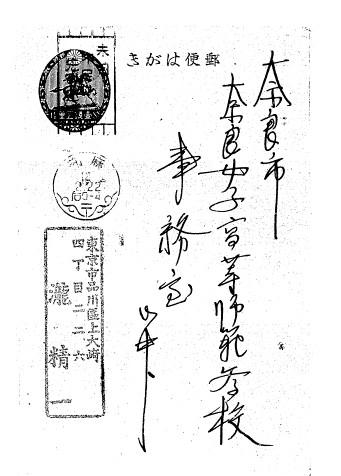 郵便はがき
奈良市
奈良女子高等師範学校
事務室
東京市品川區上大崎
四丁目二二六
瀧精一